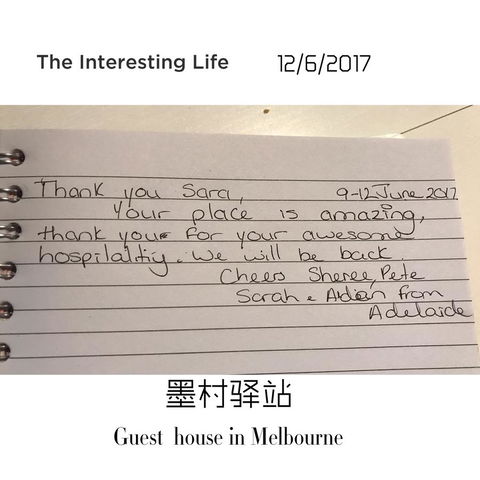 The Interesting Life 12/6/2017
Thank you Sara, 9-12 June 2017
Your place is amazing,
thank you for your awesome
hospilaltiy. We will be back.
Cheers Sheree, Pete
Sarah & Aidan from
Adelaide
墨村驿站
Guest house in Melbourne